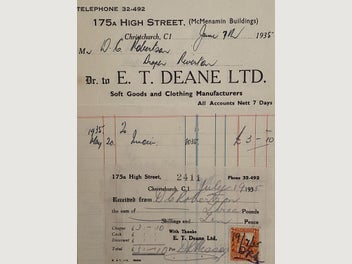 TELEPHONE 32-492
175A HIGH STREET, (McMenamin Buildings)
Christchurch, C1 June 7th 1935
Mr D C Robertson
Draper Riverton
Dr. to E. T. DEANE LTD.
Soft Goods and Clothing Manufacturers
All Accounts Nett 7 Days
1935
May 20 To £3 - 10
175a High St. 2411 Phone 32-492
Christchurch, C1 July 19 1935
Received from D C Robertson
the sum of Three Pounds
Shillings and Ten Pence
Cheque £3 - 10
Cash £
Discount £
Total £
With Thanks
E. T. Deane Ltd.
19/7/35